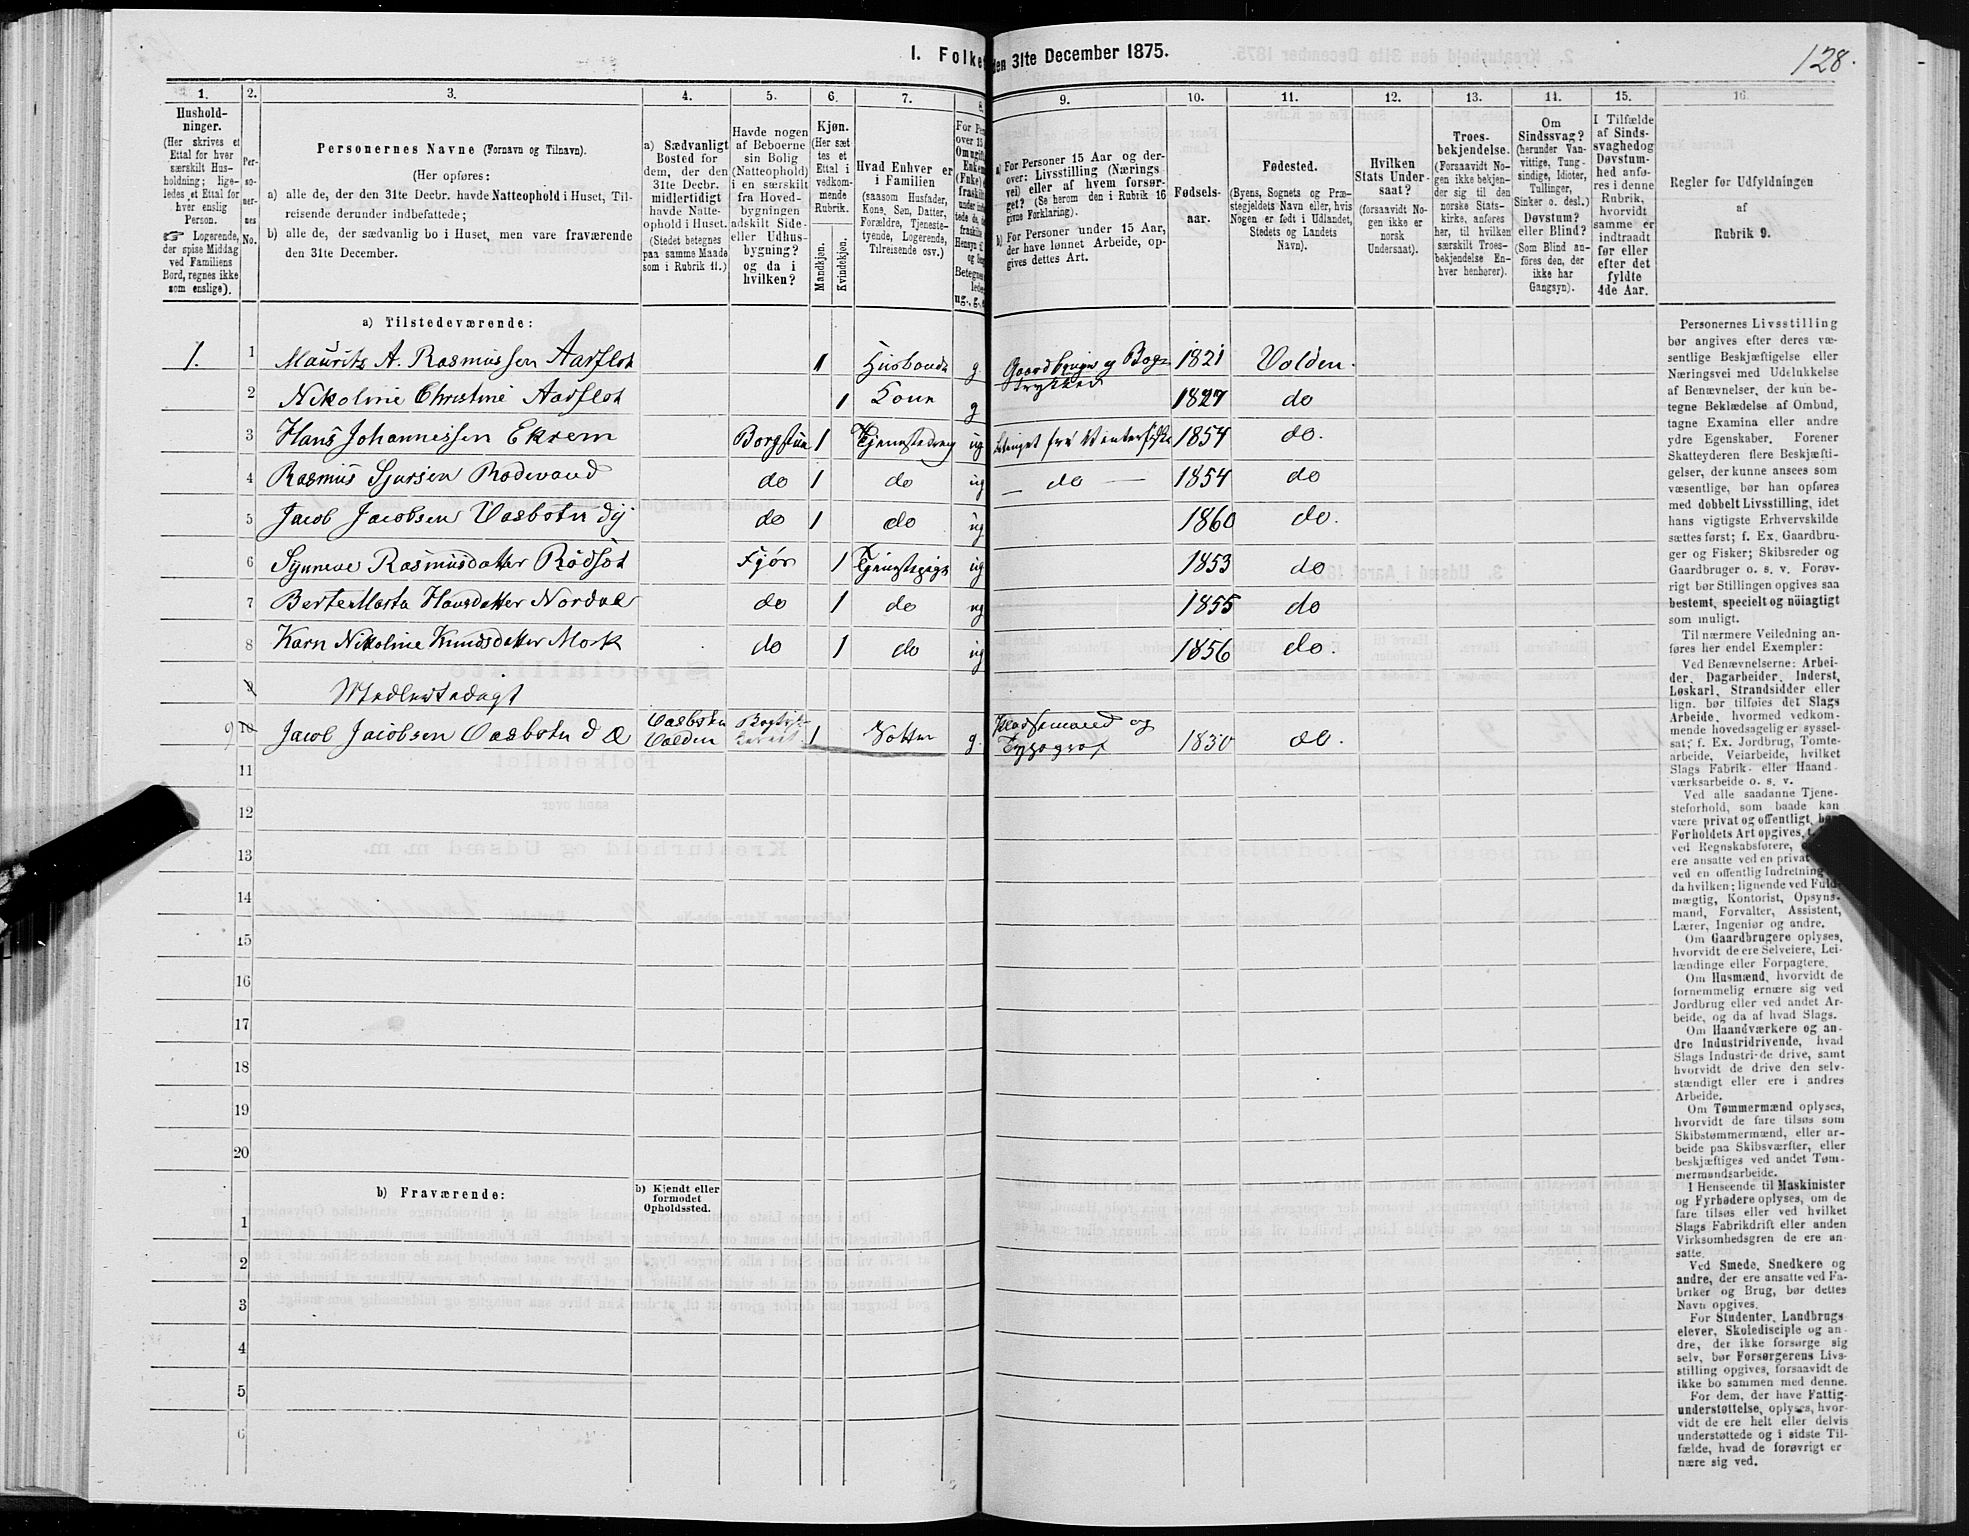 I. Folke
den 31te December 1875.
128.
1.
2.
3.
4.
5.
6.
7.
8.
9.
10.
11.
12.
13.
14.
15.
16.
Hushold-
ninger.
(Her skrives et
Ettal for hver
særskilt Hus-
holdning; lige-
ledes et Ettal for
hver enslig
Person.
Logerende,
der spise Middag
ved Familiens
Bord, regnes ikke
som enslige).
Per-
so-
ner-
nes
No.
Personernes Navne (Fornavn og Tilnavn).
(Her opføres:
a) alle de, der den 31te Decbr. havde Natteophold i Huset, Til-
reisende derunder indbefattede;
b) alle de, der sædvanlig bo i Huset, men vare fraværende
den 31te December.
a) Sædvanligt
Bosted for
dem, der den
31te Decbr.
midlertidigt
havde Natte-
ophold i Huset.
(Stedet betegnes
paa samme Maade
som i Rubrik 11.)
Havde nogen
af Beboerne
sin Bolig
(Natteophold)
i en særskilt
fra Hoved-
bygningen
adskilt Side-
eller Udhus-
bygning?
og da i
hvilken?
Kjøn.
(Her sæt-
tes et
Ettal i
vedkom-
mende
Rubrik.
Mandkjøn.
Kvindekjøn.
Hvad Enhver er
i Familien
(saasom Husfader,
Kone, Søn, Datter,
Forældre, Tjeneste-
tyende, Logerende,
Tilreisende osv.)
For Per
over 15
Om ugift
Enkem
(Fnke) e
fraskilt
under inde
tede de, de
fraskilte
Hensyn ti
og Bord
Betegnes
lede
ug., g., e
a) For Personer 15 Aar og der-
over: Livsstilling (Nærings
vei) eller af hvem forsør-
get? (Se herom den i Rubrik 16
givne Forklaring).
b) For Personer under 15 Aar,
der have lønnet Arbeide, op-
gives dettes Art.
Fødsels-
aar.
Fødested.
(Byens, Sognets og Præ-
stegjeldets Navn eller, hvis
Nogen er født i Udlandet,
Stedets og Landets
Navn).
Hvilken
Stats Under-
saat?
(forsaavidt No-
gen ikke er
norsk
Undersaat).
Troes-
bekjendelse.
(Forsaavidt No-
gen ikke bekjen-
der sig til den
norske Stats-
kirke, anføres
her, til hvilken
særskilt Troes-
bekjendelse En-
hver henhører).
Om
Sindssvag?
(herunder Van-
vittige, Tung-
sindige, Idioter,
Tullinger,
Sinker o. desl.)
Døvstum?
eller Blind?
(Som Blind an-
føres den, der
ikke har
Gangsyn).
I Tilfælde
af Sinds-
svaghedog
Døvstum-
hed anfø-
res i denne
Rubrik,
hvorvidt
samme er
indtraadt
før eller
efter det
fyldte
4de Aar.
Regler før Udfyldningen
af
Rubrik 9.
a) Tilstedeværende:
1. 1 Maurits A. Rasmussen Aarflot 1 Husbonde g Gaardbruger og Bog- trykker 1821 Volden.
2 Nikoline Christine Aarflot 1 Kone g 1827 do
3 Hans Johannessen Ekrem Borgstue 1 Tjenestedreng ug 1854 do.
4 Rasmus Sjursen Rødevand do 1 do ug — do — 1854 do
5 Jacob Jacobsen Vasbotn dy do 1 do ug 1860 do.
6 Synneve Rasmusdatter Rødsæt Fjøs 1 Tjenstepige ug 1853 do
7 Berte Marta Hansdatter Nordal do 1 do ug 1855 do
8 Karn Nikoline Knudsdatter Mork do 1 do ug 1856 do.
9
9 10 Jacob Jacobsen Vasbotn d Æ Vasbotn Volden 1 g. Pladsemand og Typograf 1830 do.
11
12
13
14
15
16
17
18
19
20
b) Fraværende:
b) Kjendt eller
formodet
Opholdssted.
1
2
3
4
5
6
Personernes Livsstilling
bør angives efter deres væ-
sentlige Beskjæftigelse eller
Næringsvei med Udelukkelse
af Benævnelser, der kun be-
tegne Beklædelse af Ombud,
tagne Examina eller andre
ydre Egenskaber. Forener
Skatteyderen flere Beskjæfti-
gelser, der kunne ansees som
væsentlige, bør han opføres
med dobbelt Livsstilling, idet
hans vigtigste Erhvervskilde
sættes først; f. Ex. Gaardbru-
ger og Fisker; Skibsreder og
Gaardbruger o. s. v. Forøv-
rigt bør Stillingen opgives saa
bestemt, specielt og nöiagtigt
som muligt.
Til nærmere Veiledning an-
føres her endel Exempler:
Ved Benævnelserne: Arbei-
der, Dagarbeider, Inderst,
Løskarl, Strandsidder eller
lign. bør tilføies det Slags
Arbeide, hvormed vedkom-
mende hovedsagelig er syssel-
sat; f. Ex. Jordbrug, Tomte-
arbeide, Veiarbeide, hvilket
Slags Fabrik- eller Haand-
værksarbeide o. s. v.
Ved alle saadanne Tjene-
steforhold, som baade kan
være privat og offentligt, bør
Forholdets Art opgives,
ved Regnskabsførere,
ere ansatte ved en privat
ved en offentlig Indretning
da hvilken; lignende ved Fuld-
mægtig, Kontorist, Opsyns-
mand, Forvalter, Assistent,
Lærer, Ingeniør og andre.
Om Gaardbrugere oplyses,
hvorvidt de ere Selveiere, Lei-
lændinge eller Forpagtere.
Om Husmænd, hvorvidt de
fornemmelig ernære sig ved
Jordbrug eller ved andet Ar-
beide, og da af hvad Slags.
Om Haandværkere og an-
dre Industridrivende, hvad
Slags Industri de drive, samt
hvorvidt de drive den selv-
stændigt eller ere i andres
Arbeide.
Om Tømmermænd oplyses,
hvorvidt de fare tilsøs som
Skibstømmermænd, eller ar-
beide paa Skibsværfter, eller
beskjæftiges ved andet Tøm-
mermandsarbeide.
I Henseende til Maskinister
og Fyrbødere oplyses, om de
fare tilsøs eller ved hvilket
Slags Fabrikdrift eller anden
Virksomhedsgren de ere an-
satte.
Ved Smede, Snedkere og
andre, der ere ansatte ved Fa-
briker og Brug, bør dettes
Navn opgives.
For Studenter, Landbrugs-
elever, Skoledisciple og an-
dre, der ikke forsørge sig
selv, bør Forsørgerens Livs-
stilling opgives, forsaavidt de
ikke bo sammen med denne.
For dem, der have Fattig-
understøttelse, oplyses, hvor-
vidt de ere helt eller delvis
understøttede og i sidste Til-
fælde, hvad de forøvrigt er
nære sig ved.